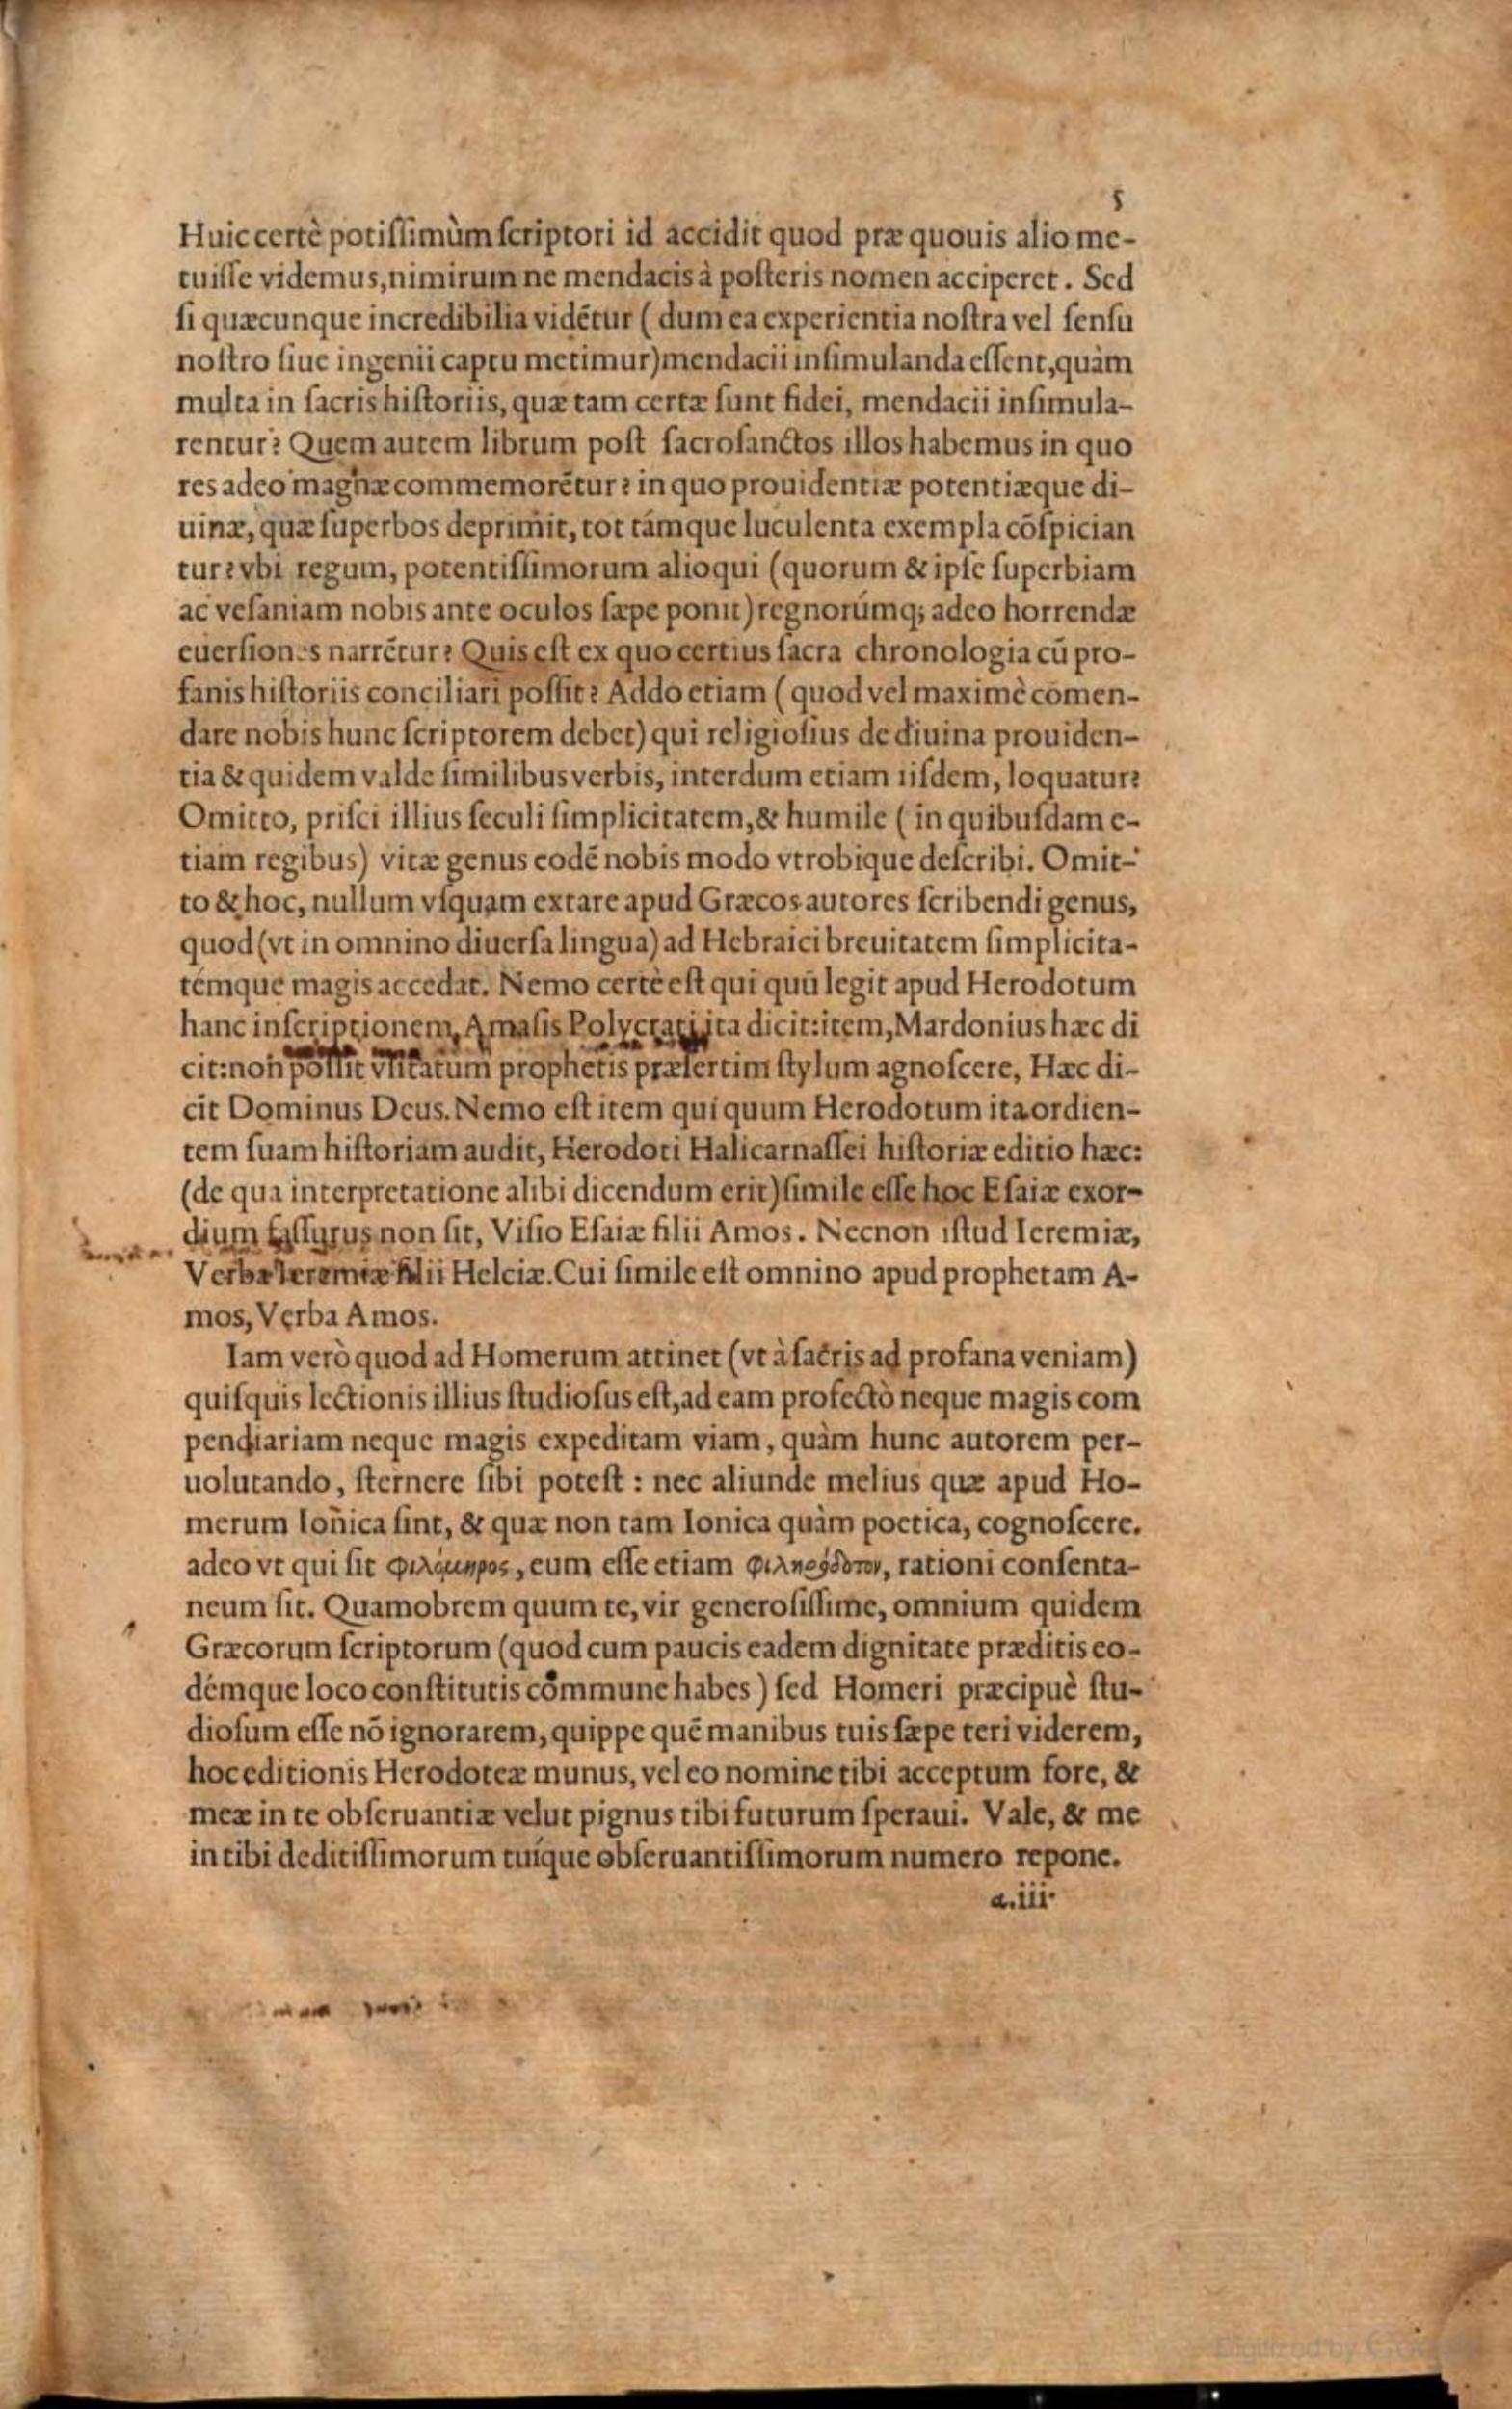 5
Huic certè potiſſimùm ſcriptori id accidit quod præ quouis alio me-
tuiſſe videmus, nimirum ne mendacis à poſteris nomen acciperet. Sed
ſi quæcunque incredibilia vidẽtur (dum ea experientia noſtra vel ſenſu
noſtro ſiue ingenii captu metimur) mendacii inſimulanda eſſent, quàm
multa in ſacris hiſtoriis, quæ tam certæ ſunt fidei, mendacii inſimula-
rentur? Quem autem librum poſt ſacroſanctos illos habemus in quo
res adeo magnæ commemorẽtur? in quo prouidentiæ potentiæque di-
uinæ, quæ ſuperbos deprimit, tot támque luculenta exempla cõſpician
tur? vbi regum, potentiſſimorum alioqui (quorum & ipſe ſuperbiam
ac veſaniam nobis ante oculos ſæpe ponit) regnorúmq; adeo horrendæ
euerſiones narrẽtur? Quis eſt ex quo certius ſacra chronologia cũ pro-
fanis hiſtoriis conciliari poſſit? Addo etiam (quod vel maximè cõmen-
dare nobis hunc ſcriptorem debet) qui religioſius de diuina prouiden-
tia & quidem valde ſimilibus verbis, interdum etiam iiſdem, loquatur?
Omitto, priſci illius ſeculi ſimplicitatem, & humile (in quibuſdam e-
tiam regibus) vitæ genus eodẽ nobis modo vtrobique deſcribi. Omit-
to & hoc, nullum vſquam extare apud Græcos autores ſcribendi genus,
quod (vt in omnino diuerſa lingua) ad Hebraici breuitatem ſimplicita-
témque magis accedat. Nemo certè eſt qui quũ legit apud Herodotum
hanc inſcriptionem, Amaſis Polycrati ita dicit: item, Mardonius hæc di
cit: non poſſit vſitatum prophetis præſertim ſtylum agnoſcere, Hæc di-
cit Dominus Deus. Nemo eſt item qui quum Herodotum ita ordien-
tem ſuam hiſtoriam audit, Herodoti Halicarnaſſei hiſtoriæ editio hæc:
(de qua interpretatione alibi dicendum erit) ſimile eſſe hoc Eſaiæ exor-
dium faſſurus non ſit, Viſio Eſaiæ filii Amos. Necnon iſtud Ieremiæ,
Verba Ieremiæ filii Helciæ. Cui ſimile eſt omnino apud prophetam A-
mos, Verba Amos.
Iam verò quod ad Homerum attinet (vt à ſacris ad profana veniam)
quiſquis lectionis illius ſtudioſus eſt, ad eam profectò neque magis com
pendiariam neque magis expeditam viam, quàm hunc autorem per-
uolutando, ſternere ſibi poteſt: nec aliunde melius quæ apud Ho-
merum Ionica ſint, & quæ non tam Ionica quàm poetica, cognoſcere.
adeo vt qui ſit φιλόμηρος, eum eſſe etiam φιληρόδοτον, rationi conſenta-
neum ſit. Quamobrem quum te, vir generoſiſſime, omnium quidem
Græcorum ſcriptorum (quod cum paucis eadem dignitate præditis eo-
démque loco conſtitutis cõmune habes) ſed Homeri præcipuè ſtu-
dioſum eſſe nõ ignorarem, quippe quẽ manibus tuis ſæpe teri viderem,
hoc editionis Herodoteæ munus, vel eo nomine tibi acceptum fore, &
meæ in te obſeruantiæ velut pignus tibi futurum ſperaui. Vale, & me
in tibi deditiſſimorum tuíque obſeruantiſſimorum numero repone.
a.iii.
Digitized by Google